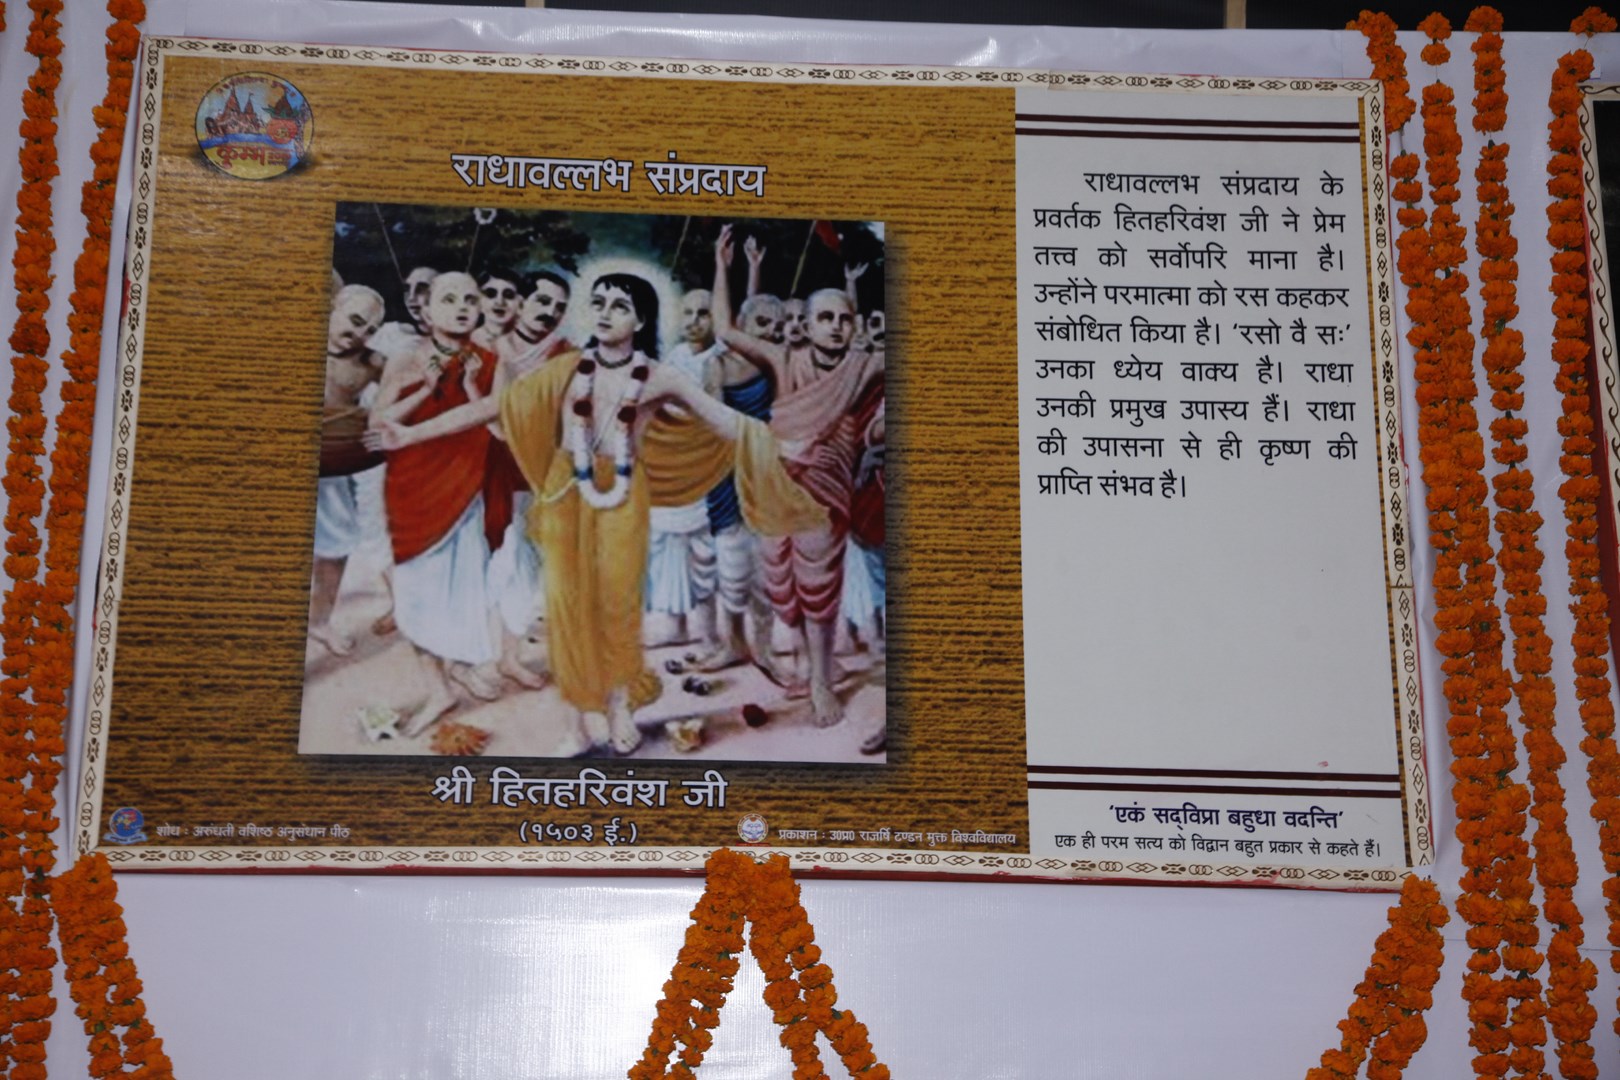 कुम्भ
राधावल्लभ संप्रदाय
श्री हितहरिवंश जी
(१५०३ ई.)
शोध : अरुंधती वशिष्ठ अनुसंधान पीठ
प्रकाशन : उ०प्र० राजर्षि टण्डन मुक्त विश्वविद्यालय
राधावल्लभ संप्रदाय के
प्रवर्तक हितहरिवंश जी ने प्रेम
तत्त्व को सर्वोपरि माना है।
उन्होंने परमात्मा को रस कहकर
संबोधित किया है। ‘रसो वै सः’
उनका ध्येय वाक्य है। राधा
उनकी प्रमुख उपास्य हैं। राधा
की उपासना से ही कृष्ण की
प्राप्ति संभव है।
‘एकं सद्विप्रा बहुधा वदन्ति’
एक ही परम सत्य को विद्वान बहुत प्रकार से कहते हैं।